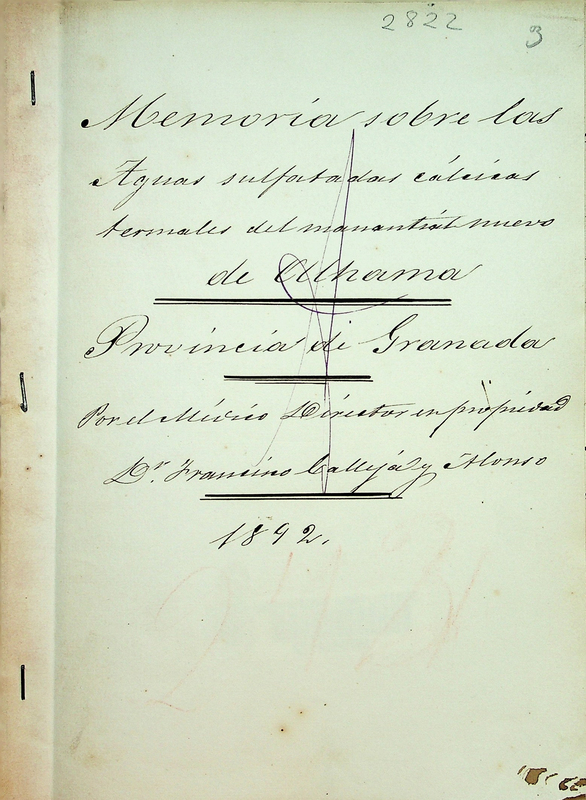 2822
3
Memoria sobre las
Aguas sulfatadas cálcicas
termales del manantial nuevo
de Alhama
Provincia de Granada
Por el Médico Director en propiedad
Dr. Francisco Calleja y Alonso
1892.